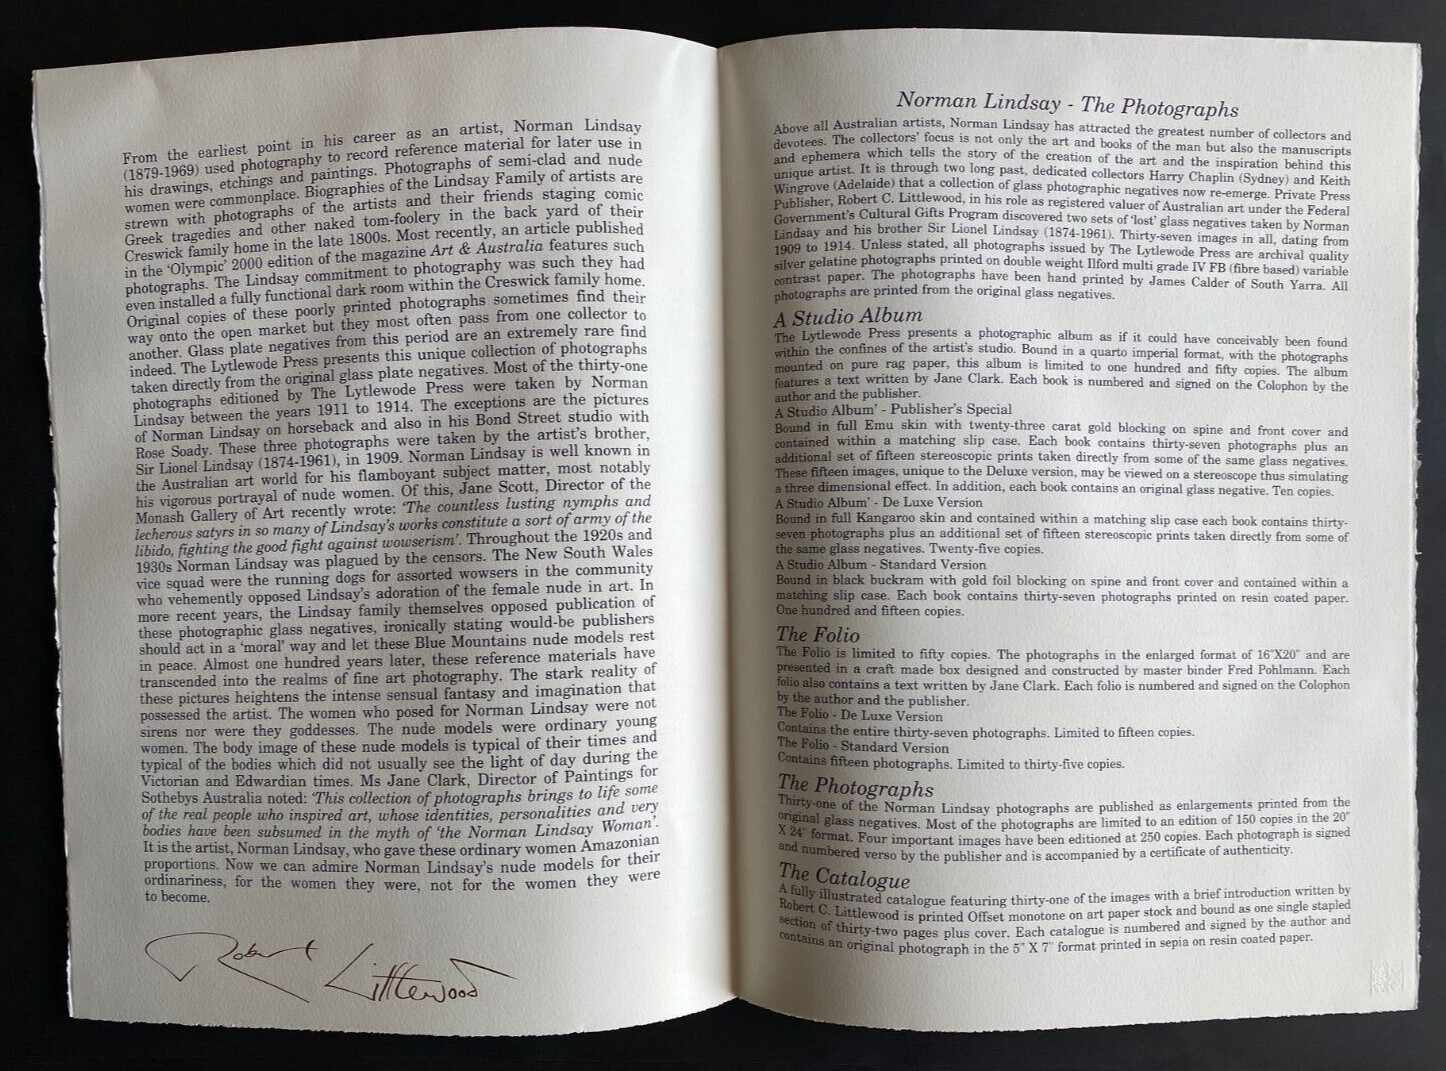 From the earliest point in his career as an artist, Norman Lindsay
(1879-1969) used photography to record reference material for later use in
his drawings, etchings and paintings. Photographs of semi-clad and nude
women were commonplace. Biographies of the Lindsay Family of artists are
strewn with photographs of the artists and their friends staging comic
Greek tragedies and other naked tom-foolery in the back yard of their
Creswick family home in the late 1800s. Most recently, an article published
in the 'Olympic' 2000 edition of the magazine Art & Australia features such
photographs. The Lindsay commitment to photography was such they had
even installed a fully functional dark room within the Creswick family home.
Original copies of these poorly printed photographs sometimes find their
way onto the open market but they most often pass from one collector to
another. Glass plate negatives from this period are an extremely rare find
indeed. The Lytlewode Press presents this unique collection of photographs
taken directly from the original glass plate negatives. Most of the thirty-one
photographs editioned by The Lytlewode Press were taken by Norman
Lindsay between the years 1911 to 1914. The exceptions are the pictures
of Norman Lindsay on horseback and also in his Bond Street studio with
Rose Soady. These three photographs were taken by the artist's brother,
Sir Lionel Lindsay (1874-1961), in 1909. Norman Lindsay is well known in
the Australian art world for his flamboyant subject matter, most notably
his vigorous portrayal of nude women. Of this, Jane Scott, Director of the
Monash Gallery of Art recently wrote: 'The countless lusting nymphs and
lecherous satyrs in so many of Lindsay's works constitute a sort of army of the
libido, fighting the good fight against wowserism'. Throughout the 1920s and
1930s Norman Lindsay was plagued by the censors. The New South Wales
vice squad were the running dogs for assorted wowsers in the community
who vehemently opposed Lindsay's adoration of the female nude in art. In
more recent years, the Lindsay family themselves opposed publication of
these photographic glass negatives, ironically stating would-be publishers
should act in a 'moral' way and let these Blue Mountains nude models rest
in peace. Almost one hundred years later, these reference materials have
transcended into the realms of fine art photography. The stark reality of
these pictures heightens the intense sensual fantasy and imagination that
possessed the artist. The women who posed for Norman Lindsay were not
sirens nor were they goddesses. The nude models were ordinary young
women. The body image of these nude models is typical of their times and
typical of the bodies which did not usually see the light of day during the
Victorian and Edwardian times. Ms Jane Clark, Director of Paintings for
Sothebys Australia noted: 'This collection of photographs brings to life some
of the real people who inspired art, whose identities, personalities and very
bodies have been subsumed in the myth of 'the Norman Lindsay Woman'.
It is the artist, Norman Lindsay, who gave these ordinary women Amazonian
proportions. Now we can admire Norman Lindsay's nude models for their
ordinariness, for the women they were, not for the women they were
to become.
Robert Littlewood
Norman Lindsay - The Photographs
Above all Australian artists, Norman Lindsay has attracted the greatest number of collectors and
devotees. The collectors' focus is not only the art and books of the man but also the manuscripts
and ephemera which tells the story of the creation of the art and the inspiration behind this
unique artist. It is through two long past, dedicated collectors Harry Chaplin (Sydney) and Keith
Wingrove (Adelaide) that a collection of glass photographic negatives now re-emerge. Private Press
Publisher, Robert C. Littlewood, in his role as registered valuer of Australian art under the Federal
Government's Cultural Gifts Program discovered two sets of 'lost' glass negatives taken by Norman
Lindsay and his brother Sir Lionel Lindsay (1874-1961). Thirty-seven images in all, dating from
1909 to 1914. Unless stated, all photographs issued by The Lytlewode Press are archival quality
silver gelatine photographs printed on double weight Ilford multi grade IV FB (fibre based) variable
contrast paper. The photographs have been hand printed by James Calder of South Yarra. All
photographs are printed from the original glass negatives.
A Studio Album
The Lytlewode Press presents a photographic album as if it could have conceivably been found
within the confines of the artist's studio. Bound in a quarto imperial format, with the photographs
mounted on pure rag paper, this album is limited to one hundred and fifty copies. The album
features a text written by Jane Clark. Each book is numbered and signed on the Colophon by the
author and the publisher.
A Studio Album' - Publisher's Special
Bound in full Emu skin with twenty-three carat gold blocking on spine and front cover and
contained within a matching slip case. Each book contains thirty-seven photographs plus an
additional set of fifteen stereoscopic prints taken directly from some of the same glass negatives.
These fifteen images, unique to the Deluxe version, may be viewed on a stereoscope thus simulating
a three dimensional effect. In addition, each book contains an original glass negative. Ten copies.
A Studio Album' - De Luxe Version
Bound in full Kangaroo skin and contained within a matching slip case each book contains thirty-
seven photographs plus an additional set of fifteen stereoscopic prints taken directly from some of
the same glass negatives. Twenty-five copies.
A Studio Album - Standard Version
Bound in black buckram with gold foil blocking on spine and front cover and contained within a
matching slip case. Each book contains thirty-seven photographs printed on resin coated paper.
One hundred and fifteen copies.
The Folio
The Folio is limited to fifty copies. The photographs in the enlarged format of 16"X20" and are
presented in a craft made box designed and constructed by master binder Fred Pohlmann. Each
folio also contains a text written by Jane Clark. Each folio is numbered and signed on the Colophon
by the author and the publisher.
The Folio - De Luxe Version
Contains the entire thirty-seven photographs. Limited to fifteen copies.
The Folio - Standard Version
Contains fifteen photographs. Limited to thirty-five copies.
The Photographs
Thirty-one of the Norman Lindsay photographs are published as enlargements printed from the
original glass negatives. Most of the photographs are limited to an edition of 150 copies in the 20"
X 24" format. Four important images have been editioned at 250 copies. Each photograph is signed
and numbered verso by the publisher and is accompanied by a certificate of authenticity.
The Catalogue
A fully illustrated catalogue featuring thirty-one of the images with a brief introduction written by
Robert C. Littlewood is printed Offset monotone on art paper stock and bound as one single stapled
section of thirty-two pages plus cover. Each catalogue is numbered and signed by the author and
contains an original photograph in the 5" X 7" format printed in sepia on resin coated paper.